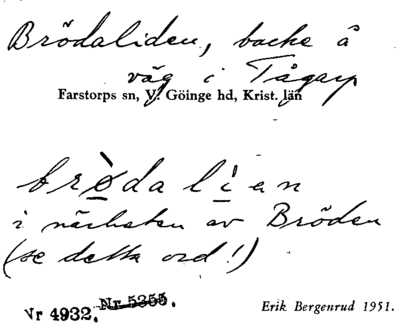 Brödaliden, backe å
väg i Tågarp
Farstorps sn, V. Göinge hd, Krist. län
brò̲da li̲an
i närheten av Bröden
(se detta ord!)
Nr 4932. Nr 5255.
Erik Bergenrud 1951.